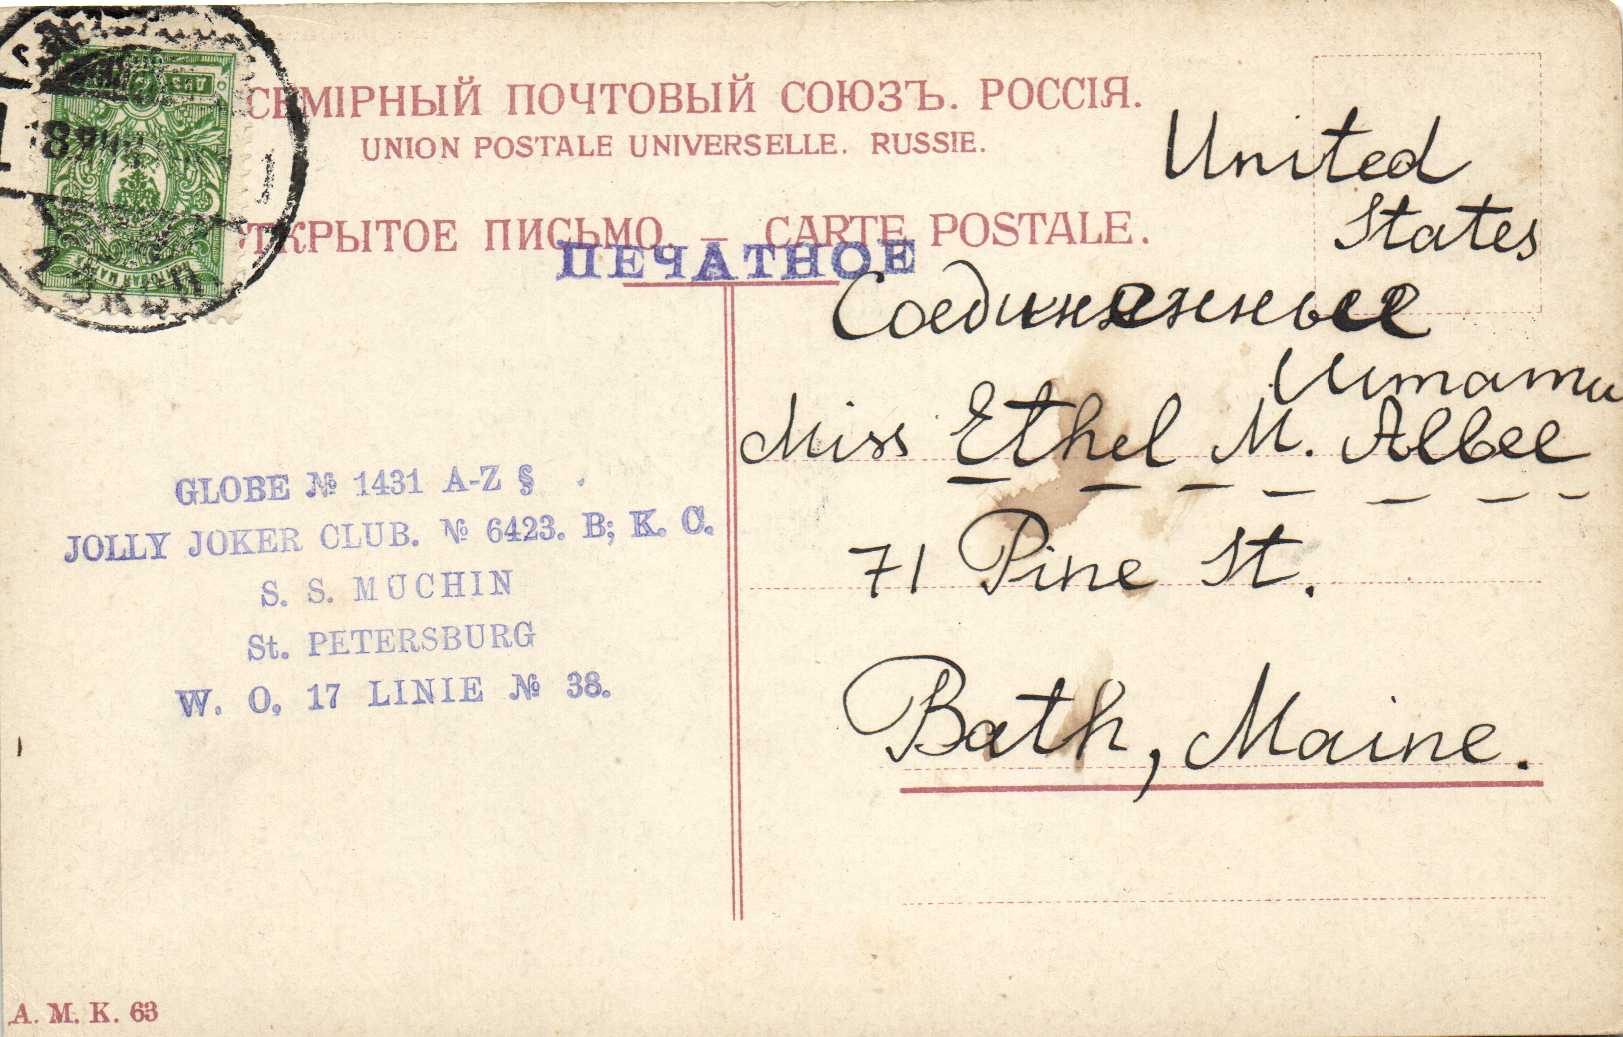 СЕМІРНЫЙ ПОЧТОВЫЙ СОЮЗЪ. РОССІЯ.
UNION POSTALE UNIVERSELLE. RUSSIE.
ТКРЫТОЕ ПИСЬМО. – CARTE POSTALE.
ПЕЧАТНОЕ
United
States
Соединенные
Штати
Miss Ethel M. Albee
71 Pine St.
Bath, Maine.
GLOBE № 1431 A-Z §
JOLLY JOKER CLUB. № 6423. B; K. C.
S. S. MUCHIN
St. PETERSBURG
W. O, 17 LINIE № 38.
A. M. K. 63